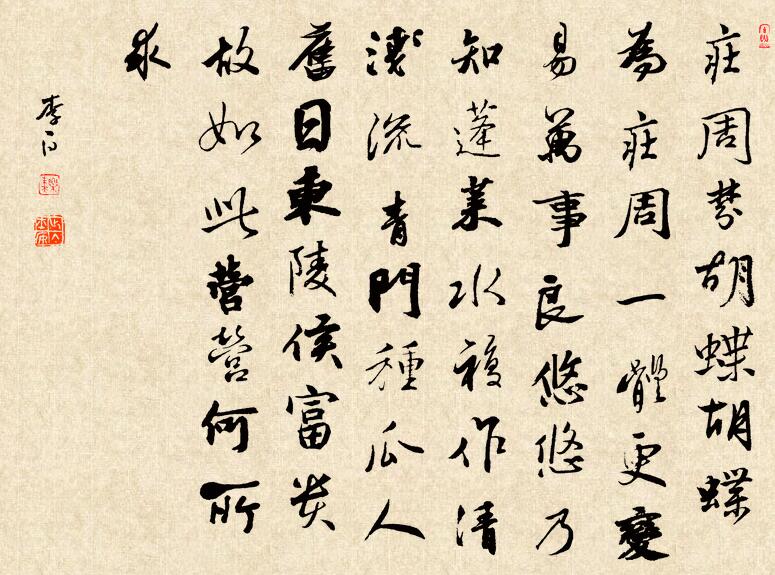 庄周梦胡蝶胡蝶
為庄周一體更變
易萬事良悠悠乃
知蓬莱水複作清
淺流青門種瓜人
舊日東陵侯富貴
故如此營營何所
求
李白